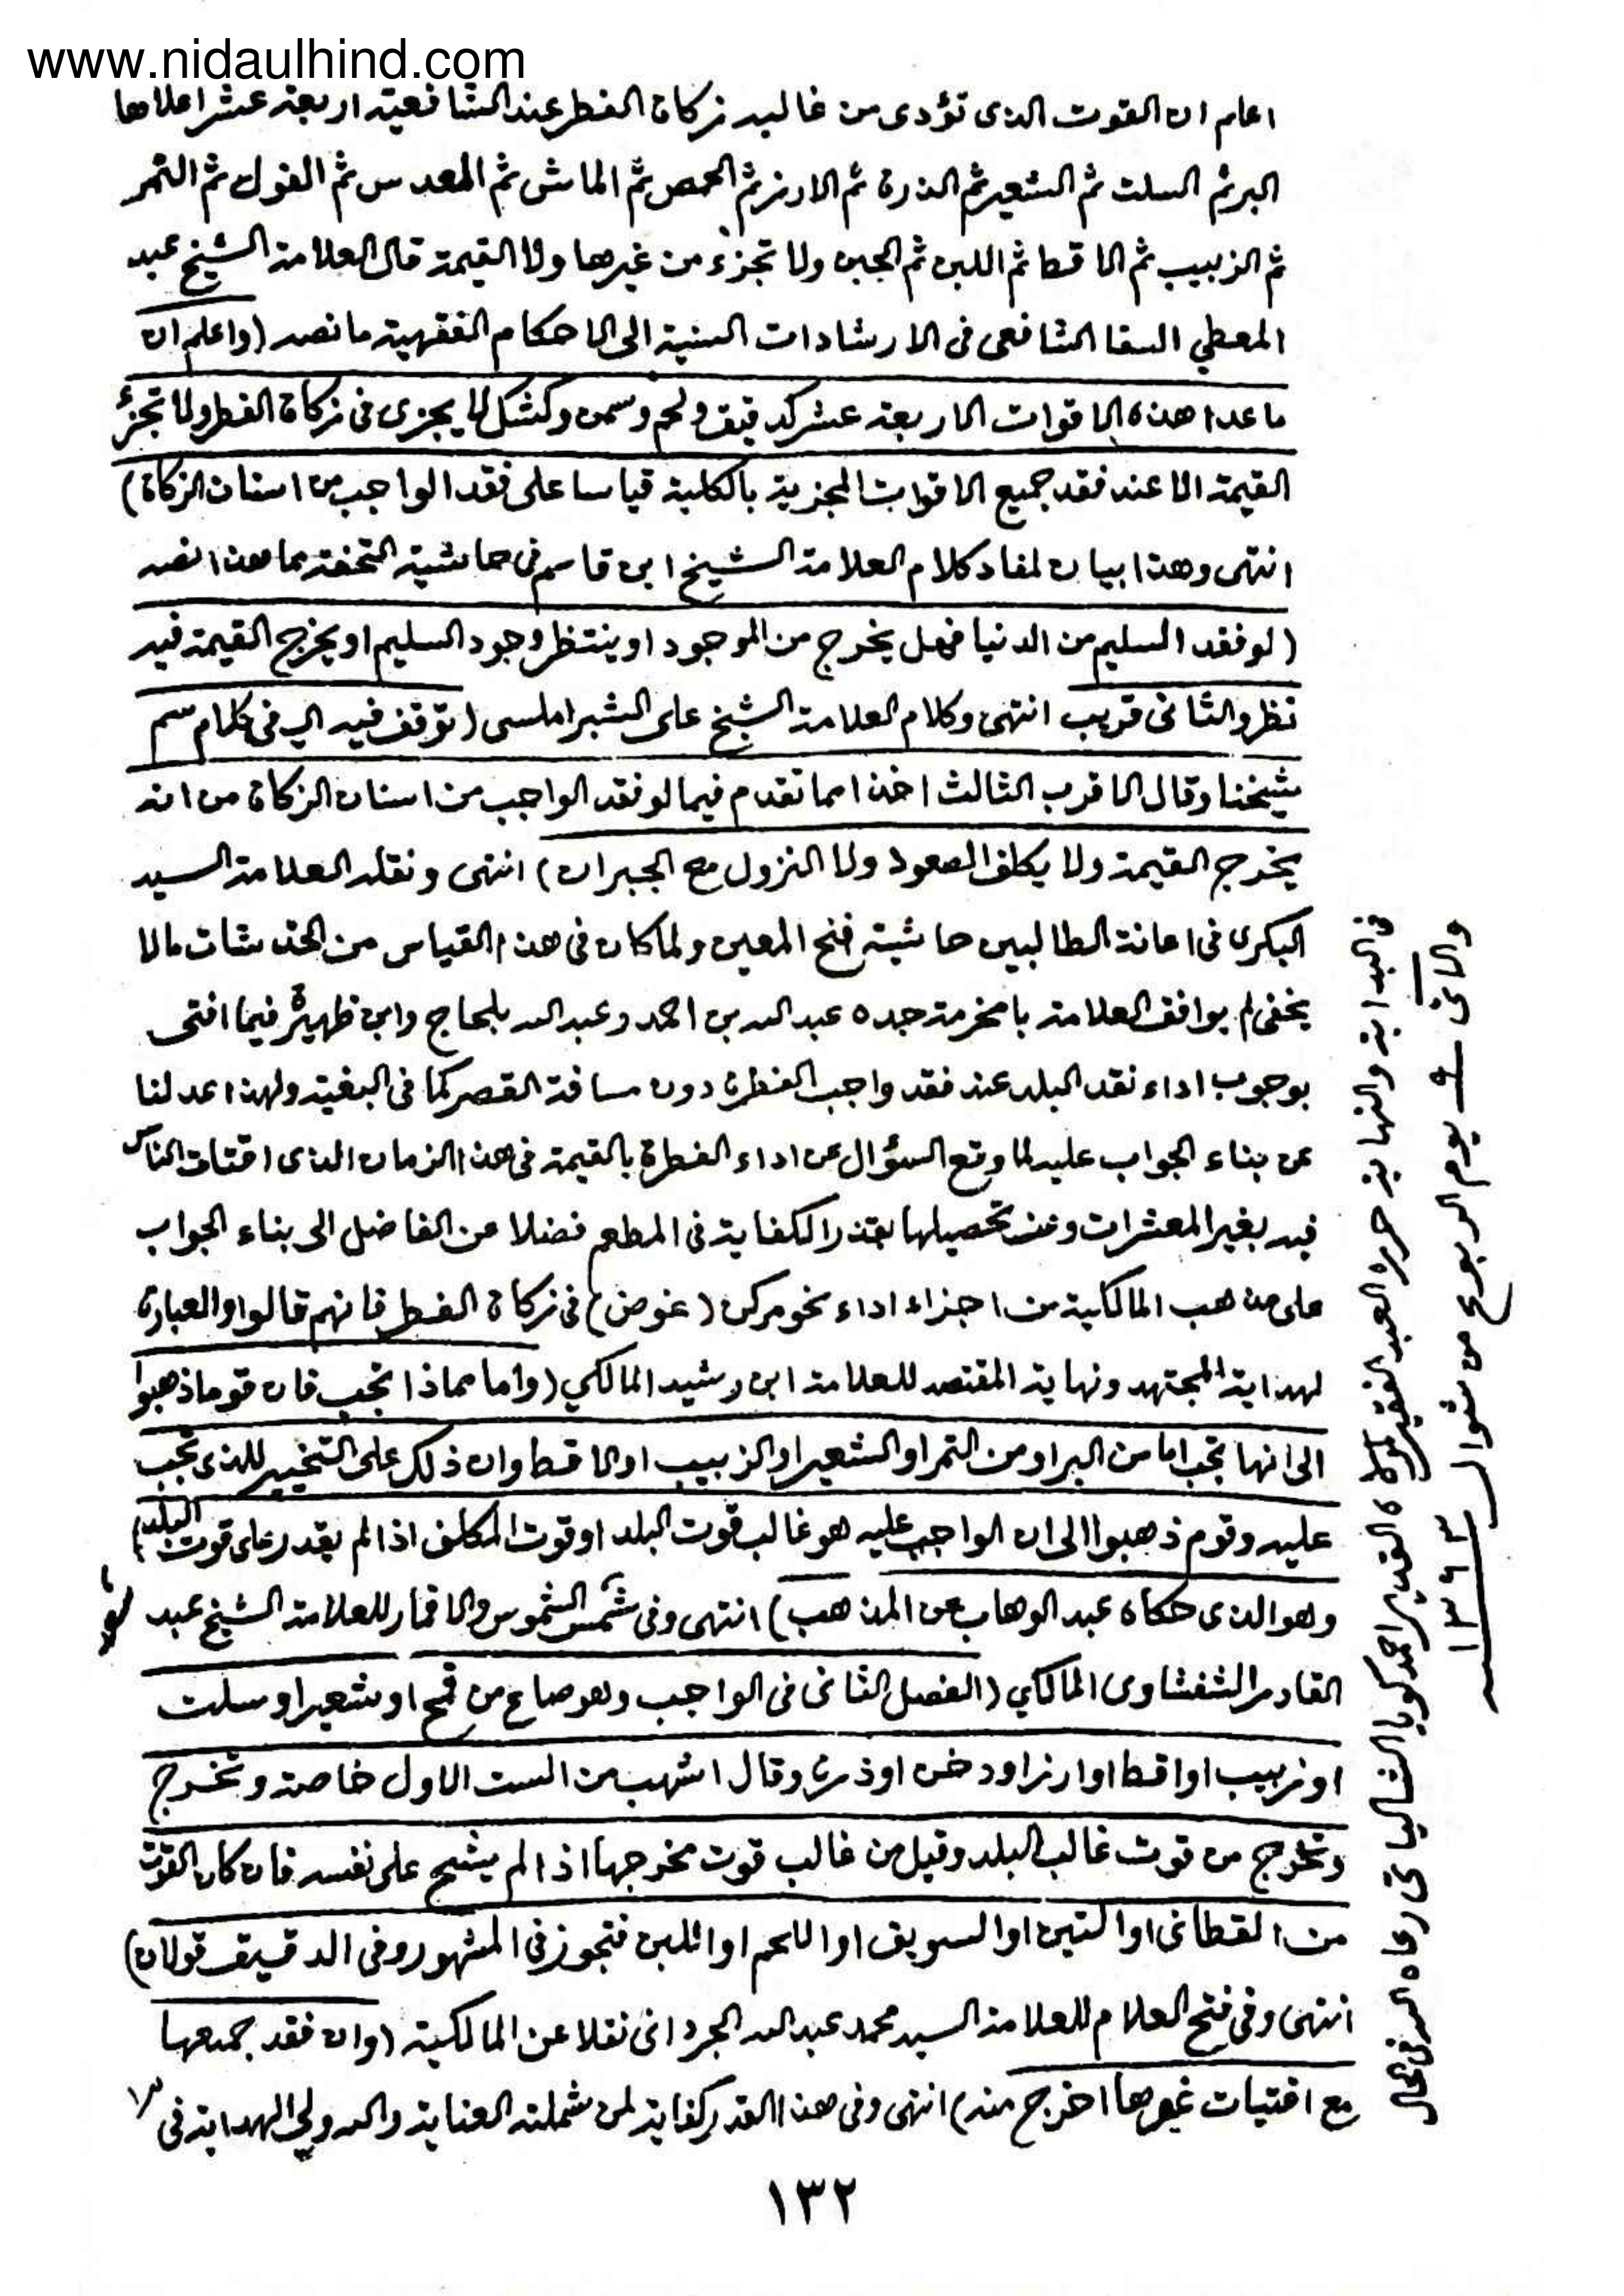 www.nidaulhind.com
اعلم ان القوت الذى تؤدى من غالبه زكاة الفطر عند الشافعية اربعة عشر اعلاها
البر ثم السلت ثم الشعير ثم الذرة ثم الارز ثم الحمص ثم الماش ثم العدس ثم الفول ثم التمر
ثم الزبيب ثم الاقط ثم اللبن ثم الجبن ولا تجزء من غيرها ولا القيمة قال العلامة الشيخ عبد
المعطي السقا الشافعى فى الارشادات السنية الى الاحكام الفقهية ما نصه (واعلم ان
ماعدا هذه الاقوات الاربعة عشر كدقيق ولحم وسمن وكشك لا يجزى فى زكاة الفطر ولا تجزئ
القيمة الا عند فقد جميع الاقوات المجزية بالكلية قياسا على فقد الواجب من اسنان الزكاة)
انتهى وهذا بيان لمفاد كلام العلامة الشيخ ابن قاسم فى حاشية التحفة مما هذا نصه
(لو فقد السليم من الدنيا فهل يخرج من الموجود او ينتظر وجود السليم او يخرج القيمة فيه
نظر والثانى قريب انتهى وكلام العلامة الشيخ على الشبراملسى (توقف فيه اي فى كلام سم
شيخنا وقال الاقرب الثالث اخذا مما تقدم فيما لو فقد الواجب من اسنان الزكاة من انه
يخرج القيمة ولا يكلف الصعود ولا النزول مع الجبران) انتهى ونقله العلامة السيد
البكرى فى اعانة الطالبين حاشية فتح المعين ولما كان فى هذا القياس من الخدشات مالا
يخفى لم يوافق العلامة بامخرمة جده عبد الله بن احمد وعبد الله بلحاج وابن ظهيرة فيما افتى
بوجوب اداء نقد البلد عند فقد واجب الفطرة دون مسافة القصر كما فى البغية ولهذا عدلنا
عن بناء الجواب عليه لما وقع السؤال عن اداء الفطرة بالقيمة فى هذا الزمان الذى اقتات الناس
فيه بغير المعشرات وعند تحصيلها بقدر الكفاية فى المطعم فضلا عن الفاضل الى بناء الجواب
على مذهب المالكية من اجزاء اداء نحو مركن (غوض) فى زكاة الفطر فانهم قالوا والعبارة
لهداية المجتهد ونهاية المقتصد للعلامة ابن رشيد المالكي (واما مماذا تجب فان قوما ذهبوا
الى انها تجب اما من البر او من التمر او الشعير او الزبيب او الاقط وان ذلك على التخيير للذى تجب
عليه وقوم ذهبوا الى ان الواجب عليه هو غالب قوت البلد او قوت المكلف اذا لم يقدر على قوت البلد)
وهو الذى حكاه عبد الوهاب عن المذهب) انتهى وفى شمس الشموس والاقمار للعلامة الشيخ عبد
القادر الشفشاوى المالكي (الفصل الثانى فى الواجب وهو صاع من قمح او شعير او سلت
او زبيب او اقط او ارز او دخن او ذرة وقال اشهب من الست الاول خاصة وتخرج
وتخرج من قوت غالب البلد وقيل من غالب قوت مخرجها اذا لم يشح على نفسه فان كان القوت
من القطانى او التين او السويق او اللحم او اللبن فتجوز فى المشهور وفى الدقيق قولان)
انتهى وفى فتح العلام للعلامة السيد محمد عبد الله الجردانى نقلا عن المالكية (وان فقد جميعها
مع اقتيات غيرها اخرج منه) انتهى وفى هذا القدر كفاية لمن شملته العناية والله ولي الهداية فى
فى البداية والنهاية حرره العبد الفقير لمولاه القدير احمد كويا الشالياتى رعاه الله فى الحال
والآتى ٩ يوم الربوع من شوال ١٣٦٣
١٣٢